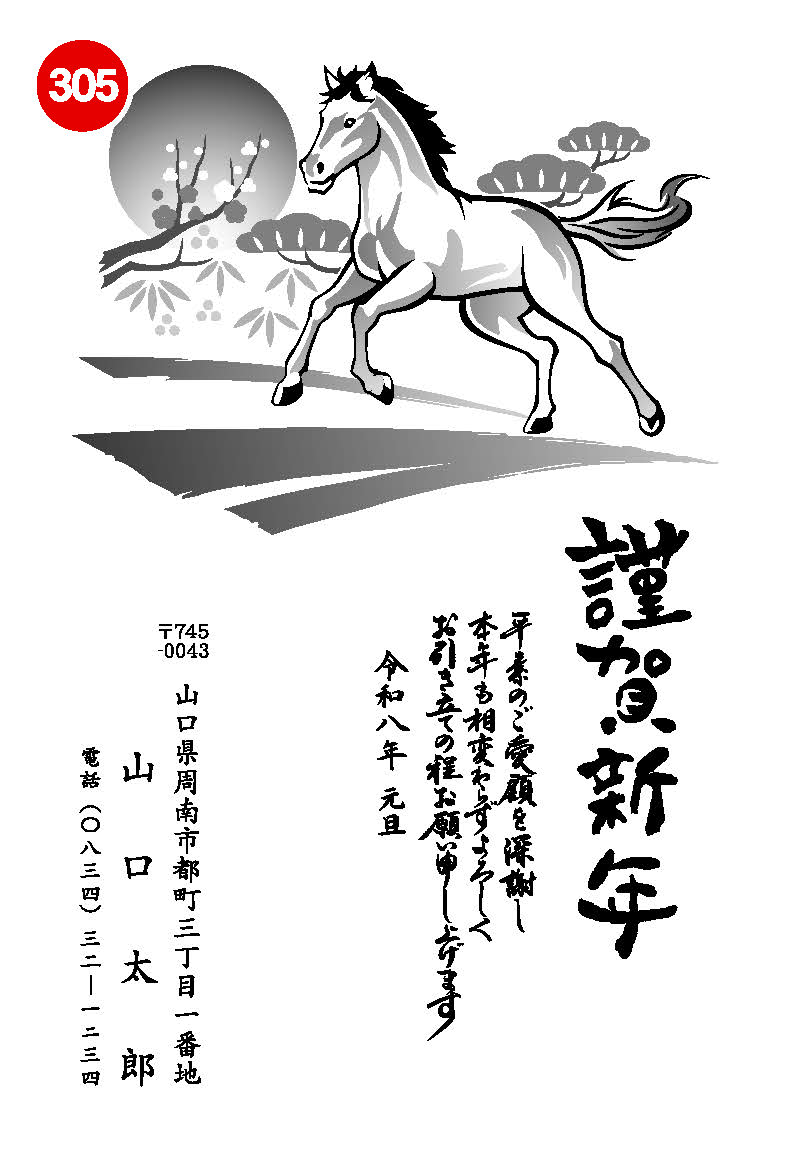 305
謹賀新年
平素のご愛顧を深謝し
本年も相変わらずよろしく
お引き立ての程お願い申し上げます
令和八年 元旦
〒745
-0043
山口県周南市都町三丁目一番地
山口太郎
電話(〇八三四)三二―一二三四